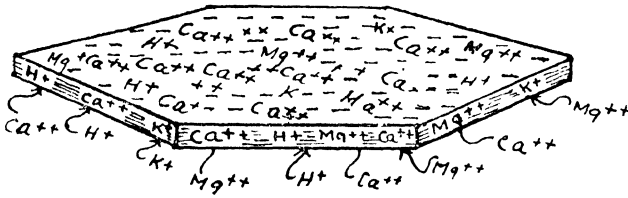 Ca++ ++ Ca++ K+
H+ Mg++ Ca++ Mg++
Mg+ Ca++ Ca++ Ca++ Ca++ ++ Ca H+
H+ ++ K Mg++
Ca+ Ca++
H+ Ca++ K+ Ca++ H+ Mg++ Ca++ Mg++ K+
Ca++ H+ K+ Mg++ H+ Ca++ Mg++ Ca++ Mg++